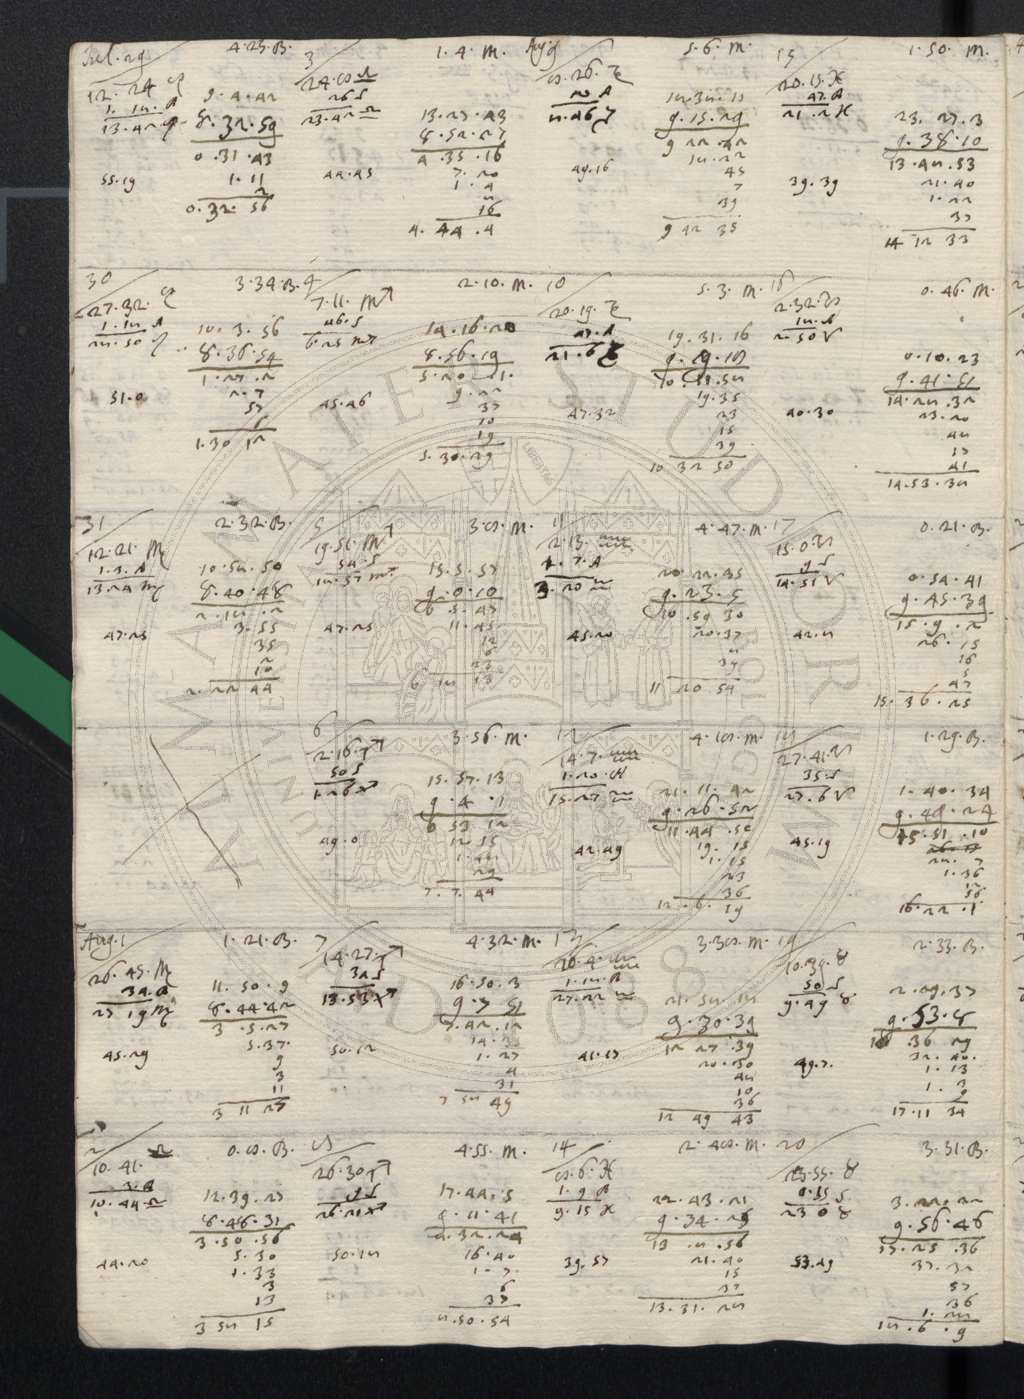 Jul. 29
4.23.B.
12.24
1.18.A
13.42
9.4.42
8.32.59
0.31.43
55.19
1.11
2
0.32.56
3
1.4.M.
24.0 ♎
26 S
23.42 ♎
13.27.43
8.52.27
4.35.16
44.45
7.20
1.4
8
16
4.44.4
Aug. 9
5.6.M.
8.26.♑
20 A
8.46 ♑
18.38.11
9.15.29
9 22.42
49.16
18.22
45
7
39
9 42 35
15
1.50.M.
20.15 ♓
47.A
21.2 ♓
23.27.3
9.38.10
13.48.53
39.39
21.40
1.22
37
14 12 32
30
3.34.B.
27.32.
1.18 A
28.50
10.3.56
8.36.54
1.27.2
51.0
2.7
57
6
1.30 12
4
2.10.M.
7.11 ♏
46.S
6.25 ♏
14.16.20
8.56.19
5.20.1
45.46
9.22
37
10
19
5.30.29
10
5.3.M.
20.19 ♑
47.A
21.6 ♑
19.31.16
9.19.18
10.11.58
47.32
19.35
23
15
39
10 32 50
16
0.46.M.
2.32 ♈
18.A
2.50 ♈
0.10.23
9.41.51
14.28.32
40.30
23.20
48
17
41
14.53.38
31
2.32.B.
12.21 ♏
1.3.A
13.24 ♏
10.58.50
8.40.48
2.18.2
47.23
3.55
35
2
10
2.22 44
5
3.8.M.
19.51 ♏
54.S
18.57 ♏
15.5.57
9.0.10
6 5.47
47.25
11.45
12
6
23
6 18 13
11
4.47.M.
2.13 ♒
1.7.A
3.20 ♒
20.22.35
9.23.5
10.59 30
45.20
20.37
8
39
11 20 54
17
0.21.B.
15.0 ♈
9 S
14.51 ♈
0.54.41
9.45.39
15.9.2
42.8
26.15
16
5
47
15.36.25
6
3.56.M.
2.16 ♐
50 S
1.26 ♐
15.57.13
9.4.1
6 53 12
49.0
12 55
1.8
29
7.7.44
12
4.18.M.
14.7 ♒
1.20.A
15.27 ♒
21.11.42
9.26.52
11.44.50
42.49
19.15
1.15
23
36
12.6.19
18
1.29.B.
27.41 ♈
35.S
27.6 ♈
1.40.34
9.49.24
15.51.10
45.19
28.7
1.36
12
56
16.22.1
Aug. 1
1.21.B.
26.45 ♏
34.A
27 19 ♏
11.50.9
8.44.42
3.5.27
45.29
5.37.
9
3
11
3 11 27
7
4.32.M.
14.27 ♐
34 S
13.53 ♐
16.50.3
9.7 51
7.42.12
50.12
14.35
1.27
4
31
7 58 49
13
3.38.M.
26.4 ♒
1.18.B
27.22 ♒
21.58 18
9.30.39
12 27.39
41.17
20.30
48
10
36
12 49 43
19
2.33.B.
10.39 ♉
50 S
9.49 ♉
2.29.37
9.53.8
16 36 29
49.7.
32.40.
1.13
1.3
9
17.11 34
2
0.8.B.
10.41. ♎
3.A
10.44 ♎
12.39.27
8.48.31
3.50.56
44.20
5.30
1.33
3
13
3 58 15
8
4.55.M.
26.30 ♐
9 S
26.21 ♐
17.44.5
9.11.41
8.32.24
50.18
16.40
1.7
6
37
8.50.54
14
2.48.M.
8.6 ♓
1.9 B
9.15 ♓
22.43.21
9.34.25
13.8.56
39.57
21.40
15
37
13.31.28
20
3.31.B.
23.55 ♉
0.55 S
23 0 ♉
3.22.22
9.56.46
17.25.36
53.49
37.32
57
36
1.28
18.6.9
ALMA MATER STUDIORUM
UNIVERSITÀ DI BOLOGNA
A.D. 1088